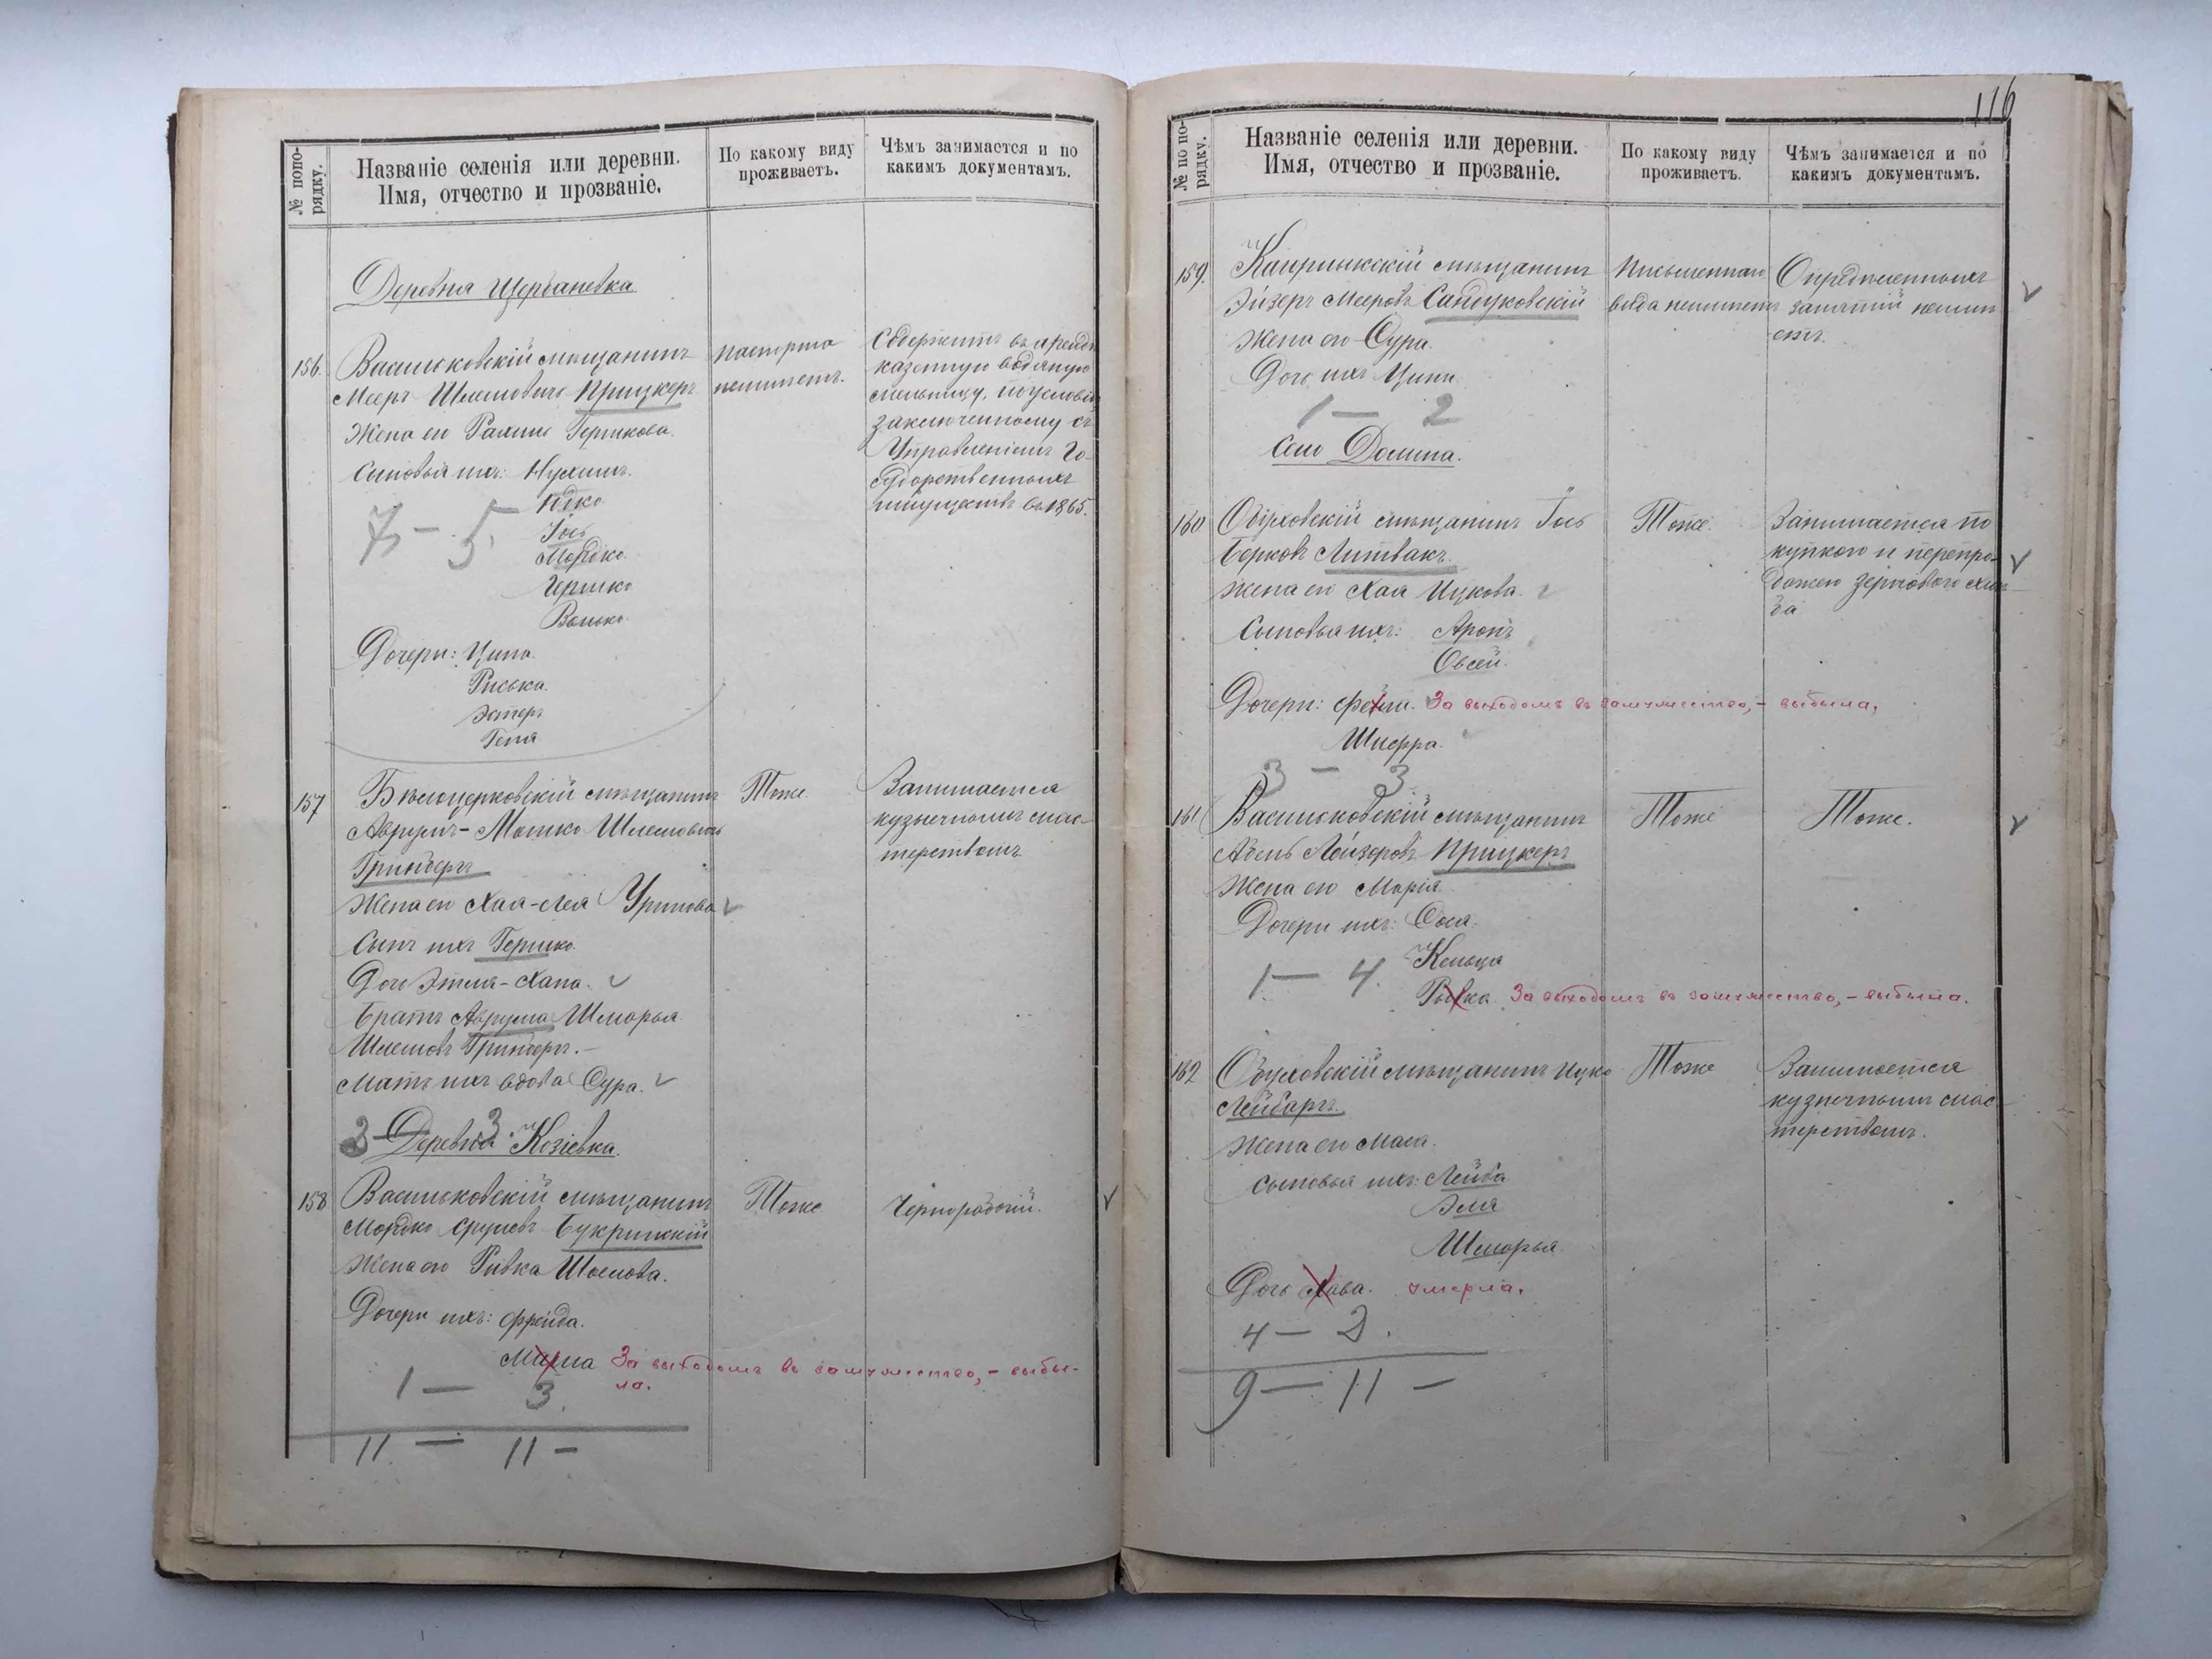 № попо-
рядку.
Названіе селенія или деревни.
Имя, отчество и прозваніе.
По какому виду
проживаетъ.
Чѣмъ занимается и по
какимъ документамъ.
Деревня Щербановка
156.
Васильковскій мѣщанинъ
Мееръ Шлемовичъ Прицкеръ
Жена его Рахиль Гершкова.
Сыновья ихъ: Нухимъ.
Юдко
Іось
Мордко
Гершко
Волько.
7 – 5
Дочери: Ципа.
Риська.
Эстеръ
Геня
паспорта
неимѣетъ.
Содержитъ въ аренд
казенную водяную
мельницу, по условію
заключенному съ
Управленіемъ Го-
сударственныхъ
имуществъ въ 1865.
157
Бѣлоцерковскій мѣщанинъ
Аврумъ-Мошко Шлемовичъ
Гринберъ
Жена его Хая-Лея Уринова
Сынъ ихъ Гершко.
Дочь Этля-Хана.
Братъ Аврума Шморья
Шлемовъ Гринберъ. –
Мать ихъ вдова Сура.
Тоже.
Занимается
кузнечнымъ мас-
терствомъ
3 – 3
Деревня Козіевка.
158
Васильковскій мѣщанинъ
Мордко Сруlевъ Букринскій
Жена его Ривка Шлемова.
Дочери ихъ: Фрейда.
Малка За выходомъ въ замужество, – выбы-
ла.
Тоже
Чернорабочій.
1 – 3.
11 – 11 –
116
№ по по-
рядку.
Названіе селенія или деревни.
Имя, отчество и прозваніе.
По какому виду
проживаетъ.
Чѣмъ занимается и по
какимъ документамъ.
159.
мѣщанинъ
Эйзеръ Мееровъ Сандуковскій
Жена его Сура.
Дочь ихъ Ципи
1 – 2
Письменнаго
вида неимѣетъ
Опредѣленныхъ
занятій неимѣ
етъ.
Село Долина.
160
Обуховскій мѣщанинъ Іось
Берковъ Литвакъ.
Жена его Хая Ицкова.
Сыновья ихъ: Аронъ
Овсей.
Дочери: Фейга. За выходомъ въ замужество, – выбыла.
Шифра.
3 – 3
Тоже.
Занимается по
купкою и перепро-
дажею зерноваго хлѣ-
ба
161
Васильковскій мѣщанинъ
Абель Лейзоровъ Прицкеръ
Жена его Марія
Дочери ихъ: Сося.
Кельця
Рывка За выходомъ въ замужество, – выбыла.
1 – 4.
Тоже
Тоже.
162
Обуховскій мѣщанинъ Ицко
Лейбаръ.
Жена его Мася.
Сыновья ихъ: Лейба
Эля
Шморья
Дочь Хава. умерла.
Тоже
Занимается
кузнечнымъ мас
терствомъ.
4 – 2.
9 – 11 –